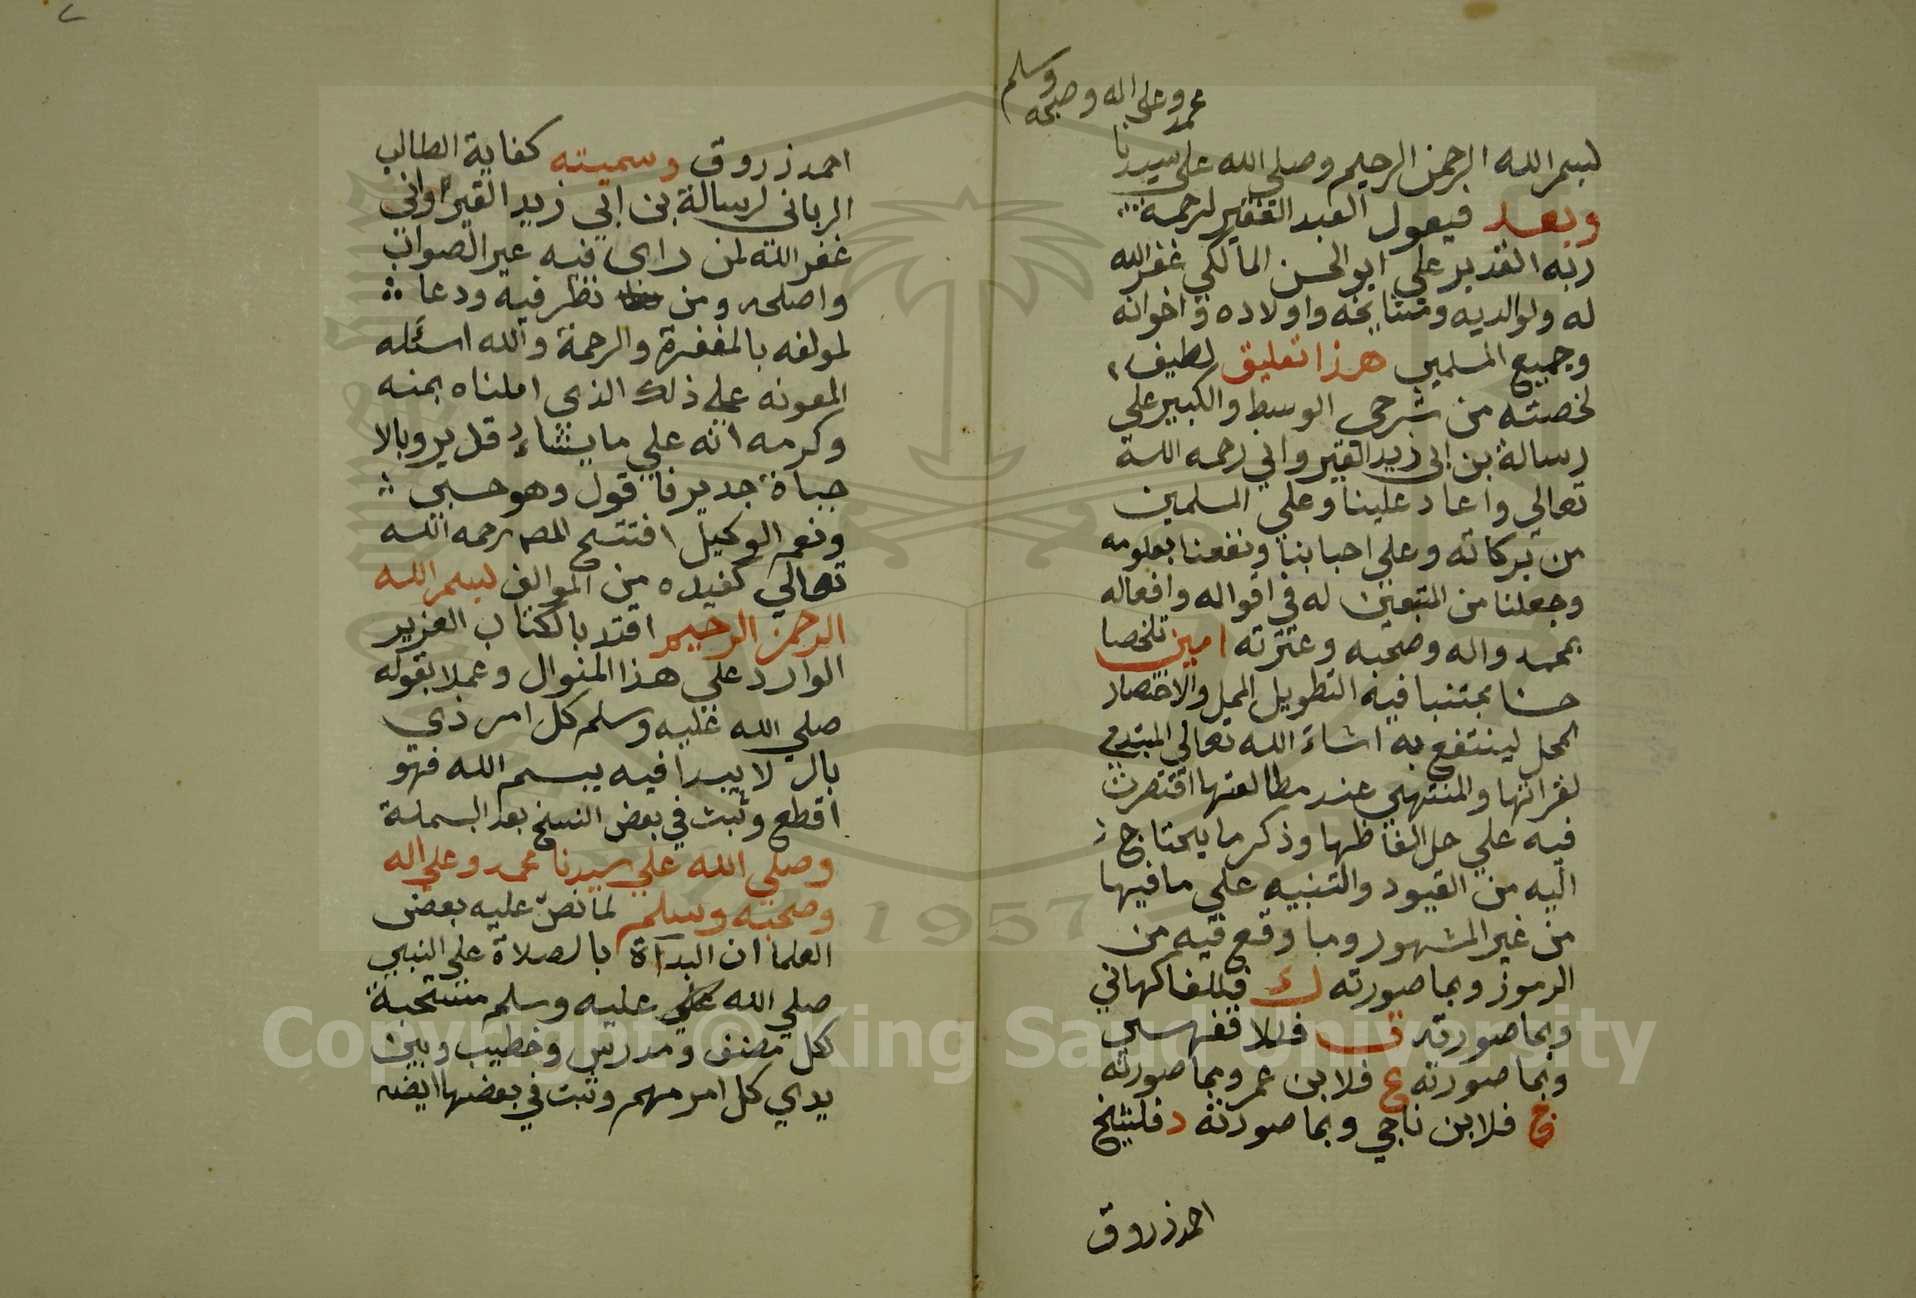 بسم الله الرحمن الرحيم وصلي الله علي سيدنا
محمد وعلي اله وصحبه وسلم
وبعد فيقول العبد الفقير لرحمة
ربه القدير علي ابو الحسن المالكي غفر الله
له ولوالديه ومشايخه واولاده واخوانه
وجميع المسلمين هذا تعليق لطيف
لخصته من شرحي الوسط والكبير علي
رسالة بن ابي زيد القيرواني رحمه الله
تعالي واعاد علينا وعلي المسلمين
من بركاته وعلي احبابنا ونفعنا بعلومه
وجعلنا من المتبعين له في اقواله وافعاله
بمحمد واله وصحبه وعترته امين تلخصا
حسنا مجتنبا فيه التطويل الممل والاختصار
المخل لينتفع به انشاء الله تعالي المبتدي
لقرائتها والمنتهي عند مطالعتها اقتصرت
فيه علي حل الفاظها وذكر ما يحتاج
اليه من القيود والتنبيه علي ما فيها
من غير المشهور وما وقع فيه من
الرموز وبما صورته ك فللفاكهاني
وبما صورته ق فللاقفهسي
وبما صورته ع فلابن عمر وبما صورته
ج فلابن ناجي وبما صورته د فللشيخ
احمد زروق
احمد زروق وسميته كفاية الطالب
الرباني لرسالة بن ابي زيد القيرواني
غفر الله لمن راى فيه غير الصواب
واصلحه ومن نظر فيه ودعا
لمولفه بالمغفرة والرحمة والله اسئله
المعونه علي ذلك الذي املناه بمنه
وكرمه انه علي ما يشاء قدير وبالا
جباة جدير فاقول وهو حسبي
ونعم الوكيل افتتح المصـ رحمه الله
تعالي كغيره من الموالف بسم الله
الرحمن الرحيم اقتد بالكتاب العزيز
الوارد علي هذا المنوال وعملا بقوله
صلي الله عليه وسلم كل امر ذي
بال لا يبدا فيه ببسم الله فهو
اقطع وثبت في بعض النسخ بعد البسملة
وصلي الله علي سيدنا محمد وعلي اله
وصحبه وسلم لما نص عليه بعض
العلما ان البدأة بالصلاة علي النبي
صلي الله علي عليه وسلم مستحبة
لكل مصنف ومدرس وخطيب وبين
يدي كل امر مهم وثبت في بعضها ايضـ
Copyright © King Saud University
1957